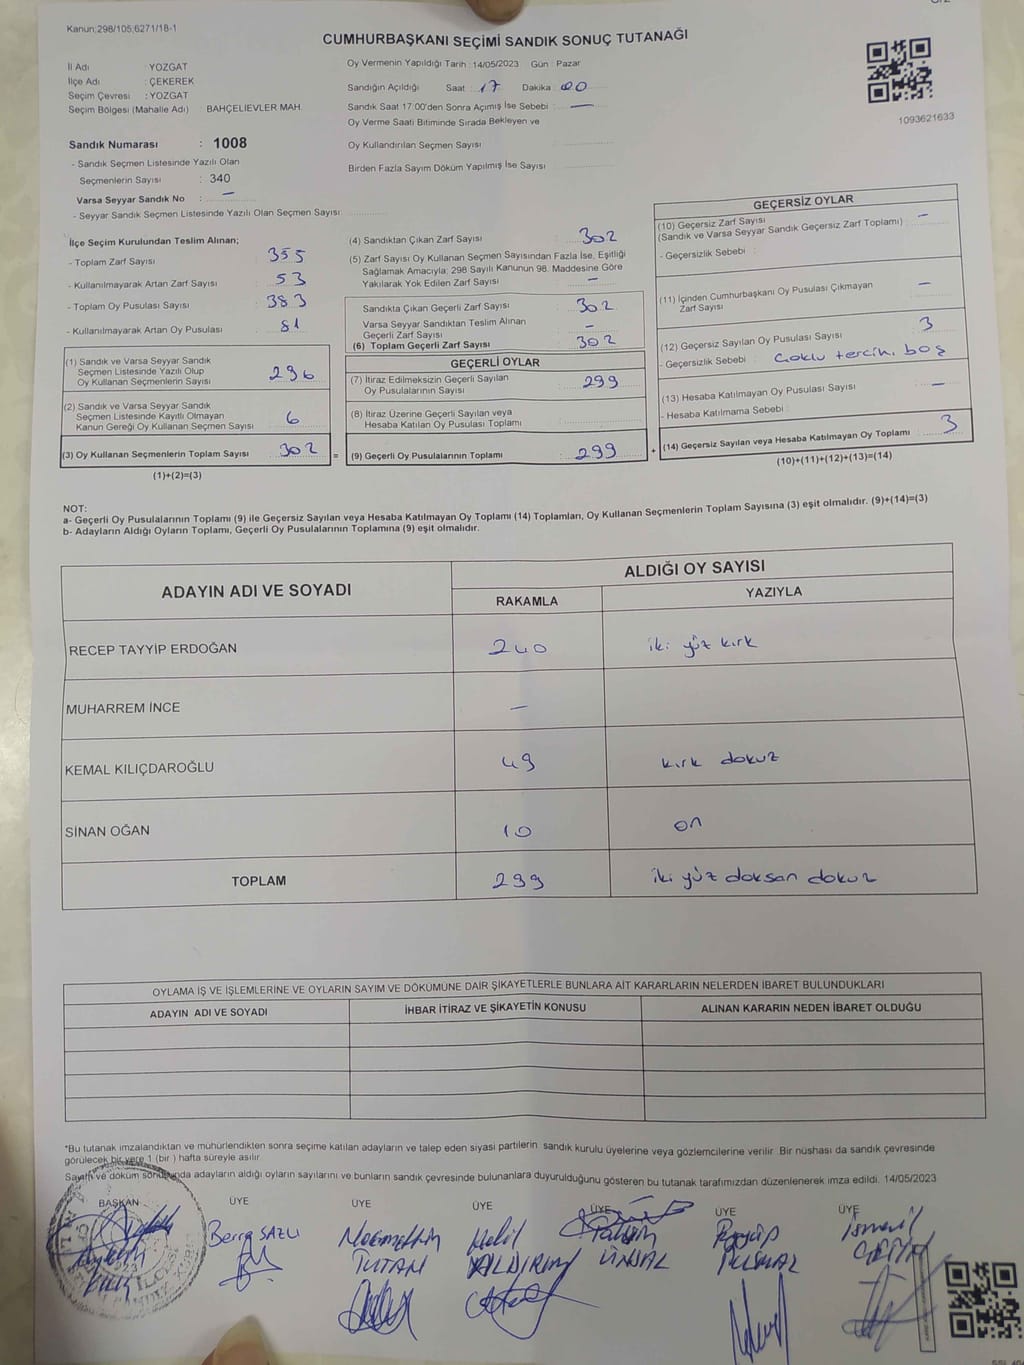 Kanun:298/105;6271/18-1
CUMHURBAŞKANI SEÇİMİ SANDIK SONUÇ TUTANAĞI
İl Adı : YOZGAT
İlçe Adı : ÇEKEREK
Seçim Çevresi : YOZGAT
Seçim Bölgesi (Mahalle Adı) BAHÇELİEVLER MAH.
Sandık Numarası : 1008
- Sandık Seçmen Listesinde Yazılı Olan
Seçmenlerin Sayısı : 340
Varsa Seyyar Sandık No : –
- Seyyar Sandık Seçmen Listesinde Yazılı Olan Seçmen Sayısı:
Oy Vermenin Yapıldığı Tarih : 14/05/2023 Gün : Pazar
Sandığın Açıldığı Saat : 17 Dakika : 00
Sandık Saat 17:00'den Sonra Açılmış İse Sebebi : —
Oy Verme Saati Bitiminde Sırada Bekleyen ve
Oy Kullandırılan Seçmen Sayısı :
Birden Fazla Sayım Döküm Yapılmış İse Sayısı :
1093621633
İlçe Seçim Kurulundan Teslim Alınan;
- Toplam Zarf Sayısı : 355
- Kullanılmayarak Artan Zarf Sayısı : 53
- Toplam Oy Pusulası Sayısı : 383
- Kullanılmayarak Artan Oy Pusulası : 81
(1) Sandık ve Varsa Seyyar Sandık
Seçmen Listesinde Yazılı Olup
Oy Kullanan Seçmenlerin Sayısı : 296
(2) Sandık ve Varsa Seyyar Sandık
Seçmen Listesinde Kayıtlı Olmayan
Kanun Gereği Oy Kullanan Seçmen Sayısı : 6
(3) Oy Kullanan Seçmenlerin Toplam Sayısı : 302 =
(1)+(2)=(3)
(4) Sandıktan Çıkan Zarf Sayısı : 302
(5) Zarf Sayısı Oy Kullanan Seçmen Sayısından Fazla İse, Eşitliği
Sağlamak Amacıyla; 298 Sayılı Kanunun 98. Maddesine Göre
Yakılarak Yok Edilen Zarf Sayısı : –
Sandıkta Çıkan Geçerli Zarf Sayısı : 302
Varsa Seyyar Sandıktan Teslim Alınan
Geçerli Zarf Sayısı : –
(6) Toplam Geçerli Zarf Sayısı : 302
GEÇERLİ OYLAR
(7) İtiraz Edilmeksizin Geçerli Sayılan
Oy Pusulalarının Sayısı : 299
(8) İtiraz Üzerine Geçerli Sayılan veya
Hesaba Katılan Oy Pusulası Toplamı :
(9) Geçerli Oy Pusulalarının Toplamı : 299 +
GEÇERSİZ OYLAR
(10) Geçersiz Zarf Sayısı
(Sandık ve Varsa Seyyar Sandık Geçersiz Zarf Toplamı) : –
- Geçersizlik Sebebi :
(11) İçinden Cumhurbaşkanı Oy Pusulası Çıkmayan
Zarf Sayısı : –
(12) Geçersiz Sayılan Oy Pusulası Sayısı : 3
- Geçersizlik Sebebi : Çoklu tercih, boş
(13) Hesaba Katılmayan Oy Pusulası Sayısı : –
- Hesaba Katılmama Sebebi :
(14) Geçersiz Sayılan veya Hesaba Katılmayan Oy Toplamı : 3
(10)+(11)+(12)+(13)=(14)
NOT:
a- Geçerli Oy Pusulalarının Toplamı (9) ile Geçersiz Sayılan veya Hesaba Katılmayan Oy Toplamı (14) Toplamları, Oy Kullanan Seçmenlerin Toplam Sayısına (3) eşit olmalıdır. (9)+(14)=(3)
b- Adayların Aldığı Oyların Toplamı, Geçerli Oy Pusulalarının Toplamına (9) eşit olmalıdır.
ADAYIN ADI VE SOYADI ALDIĞI OY SAYISI
RAKAMLA YAZIYLA
RECEP TAYYİP ERDOĞAN 240 iki yüz kırk
MUHARREM İNCE –
KEMAL KILIÇDAROĞLU 49 kırk dokuz
SİNAN OĞAN 10 on
TOPLAM 299 iki yüz doksan dokuz
OYLAMA İŞ VE İŞLEMLERİNE VE OYLARIN SAYIM VE DÖKÜMÜNE DAİR ŞİKAYETLERLE BUNLARA AİT KARARLARIN NELERDEN İBARET BULUNDUKLARI
ADAYIN ADI VE SOYADI İHBAR İTİRAZ VE ŞİKAYETİN KONUSU ALINAN KARARIN NEDEN İBARET OLDUĞU
*Bu tutanak imzalandıktan ve mühürlendikten sonra seçime katılan adayların ve talep eden siyasi partilerin sandık kurulu üyelerine veya gözlemcilerine verilir. Bir nüshası da sandık çevresinde
görülecek bir yere 1 (bir ) hafta süreyle asılır.
Sayım ve döküm sonucunda adayların aldığı oyların sayılarını ve bunların sandık çevresinde bulunanlara duyurulduğunu gösteren bu tutanak tarafımızdan düzenlenerek imza edildi. 14/05/2023
BAŞKAN ÜYE ÜYE ÜYE ÜYE ÜYE ÜYE
Berra SAZLI Necmettin Halil Rahşin İsmail
TUTAN YILDIRIM ÜNSAL